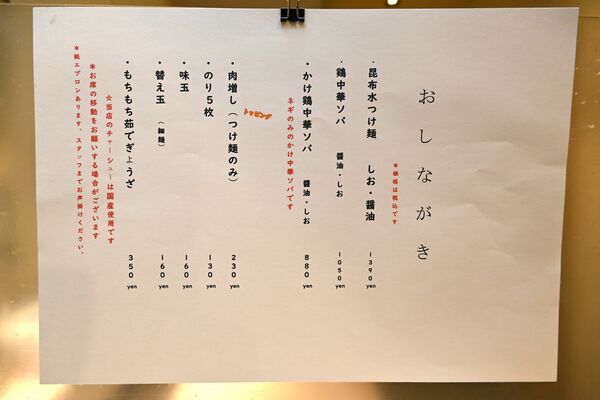 おしながき
＊価格は税込です
・昆布水つけ麺　しお・醤油　1390yen
・鶏中華ソバ　醤油・しお　1050yen
・かけ鶏中華ソバ　醤油・しお　880yen
ネギのみのかけ中華ソバです
トッピング
・肉増し（つけ麺のみ）　230yen
・のり5枚　130yen
・味玉　160yen
・替え玉（細麺）　160yen
・もちもち茹でぎょうざ　350yen
☆当店のチャーシューは国産使用です
＊お席の移動をお願いする場合がございます
＊紙エプロンあります。スタッフまでお声掛けください。